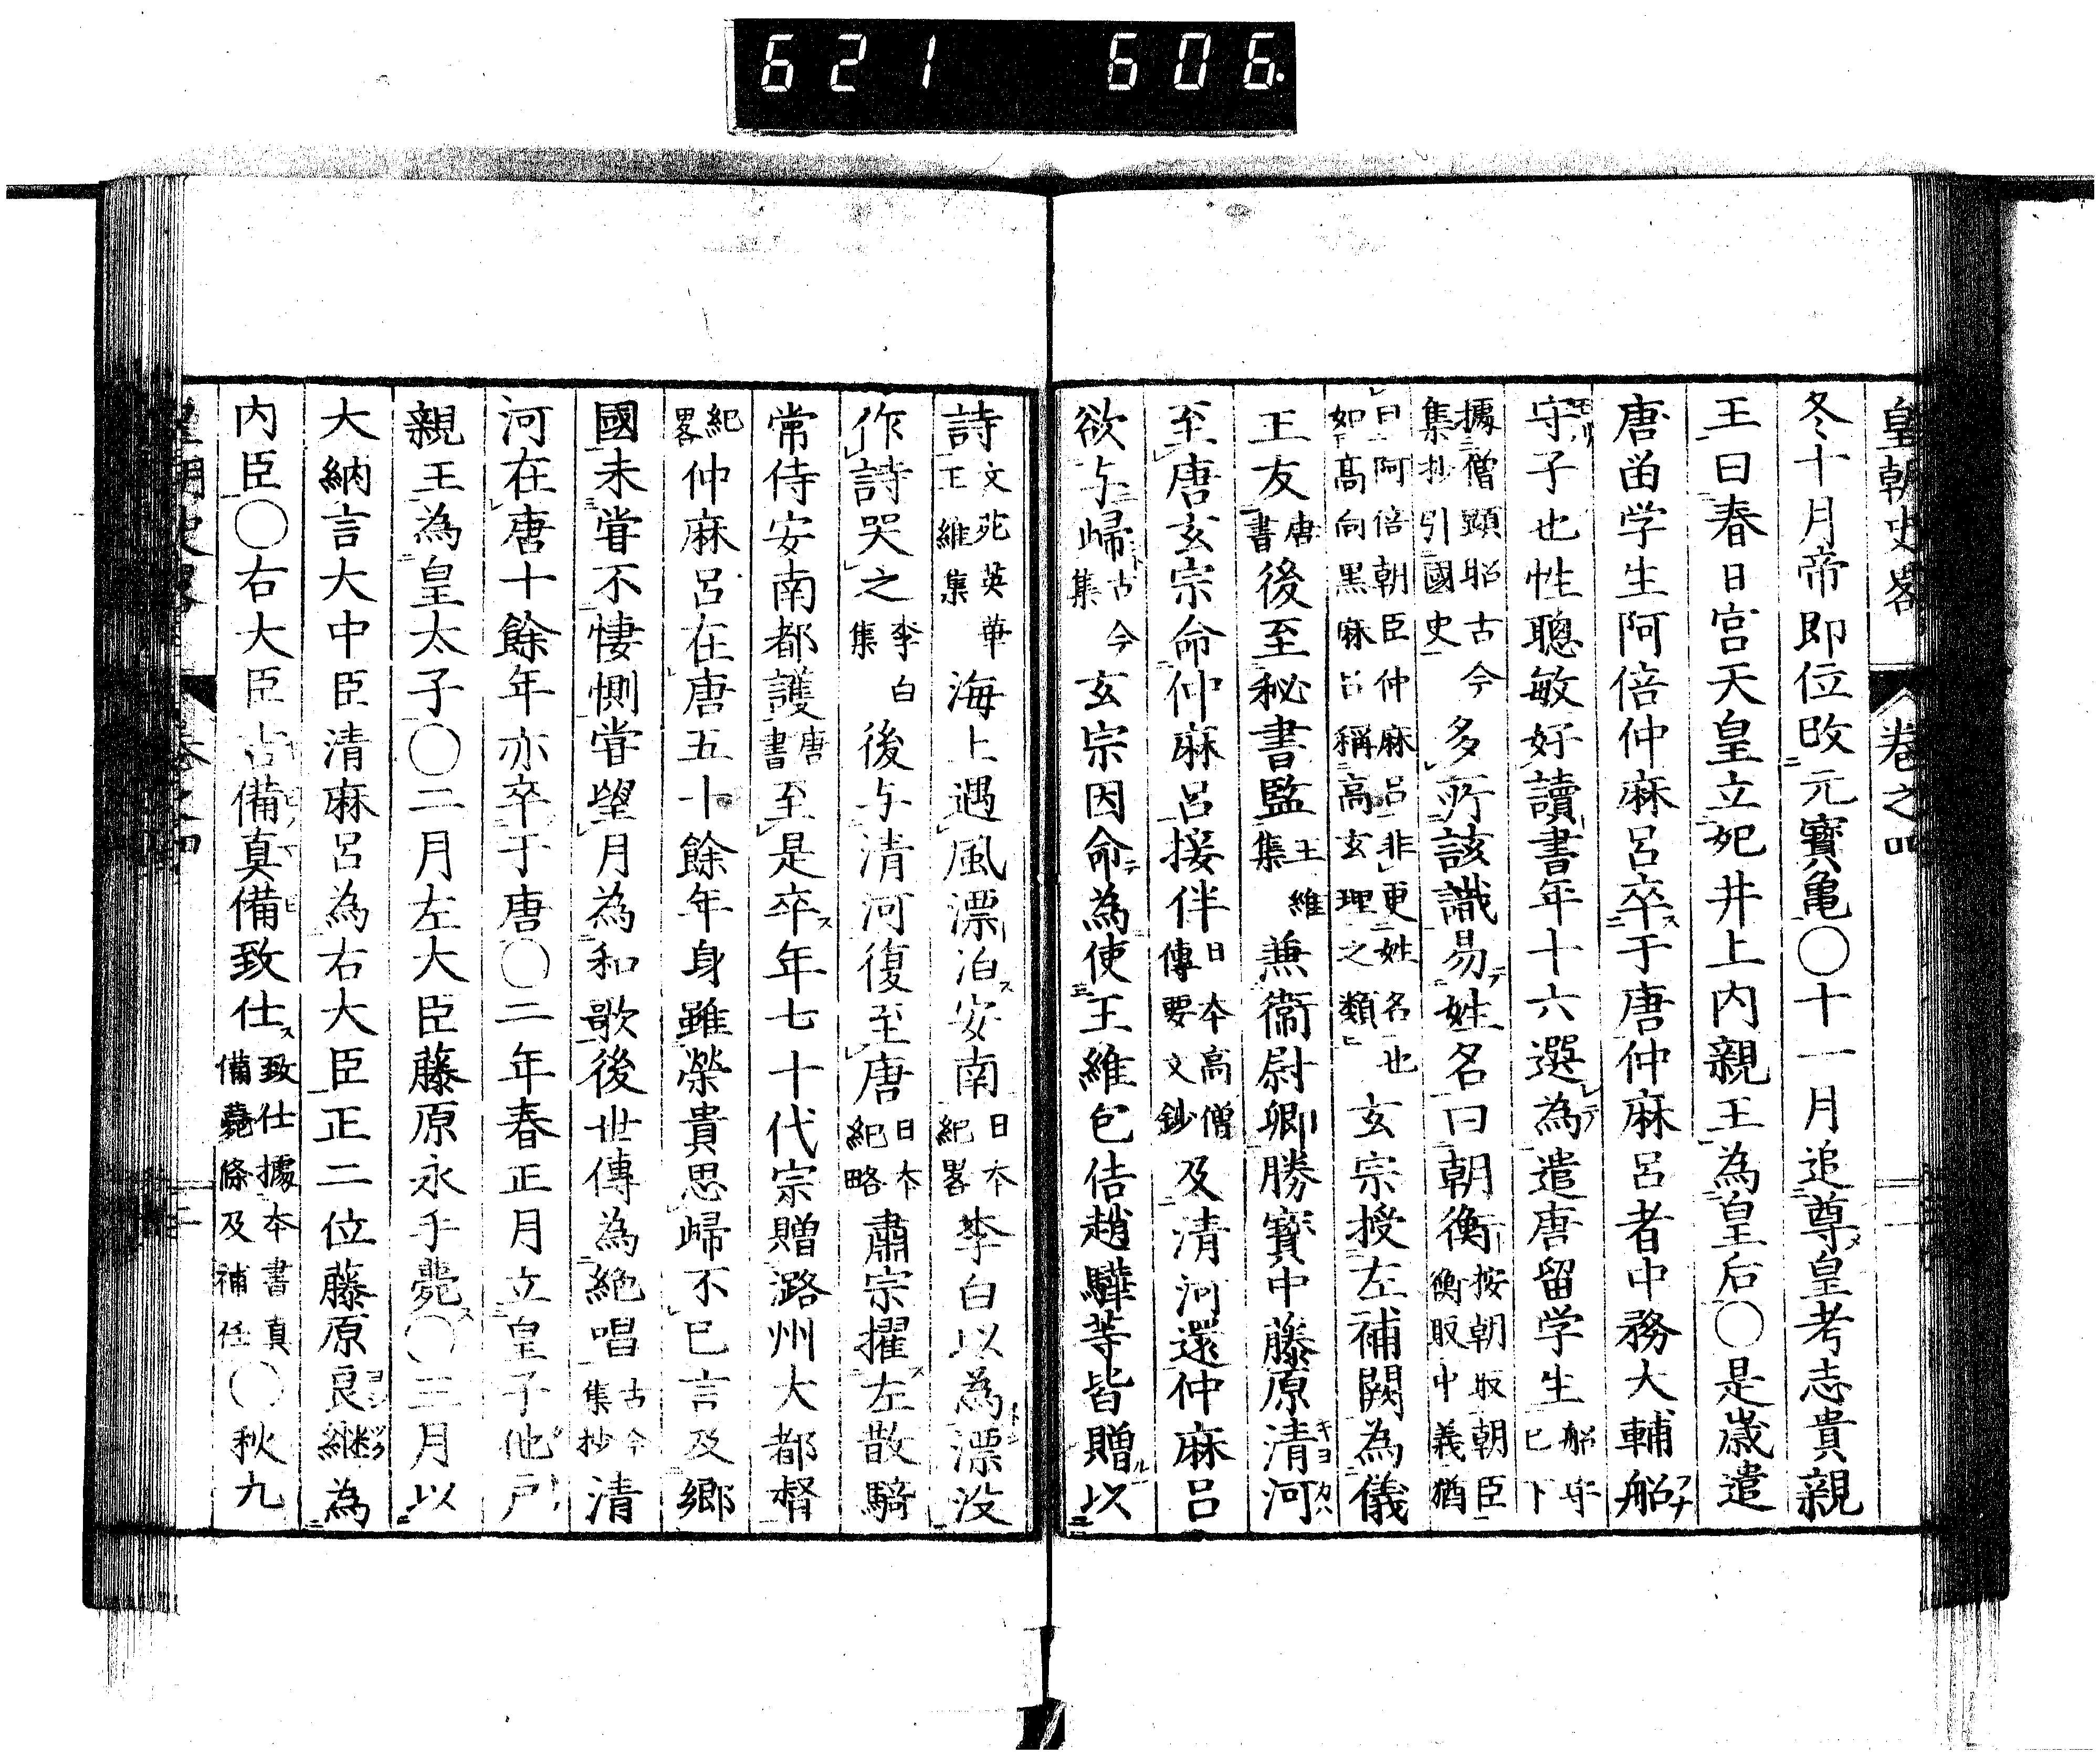 621 606.
皇朝史畧 卷之四
冬十月帝即位改元寶亀〇十一月追尊皇考志貴親
王曰春日宮天皇立妃井上内親王為皇后〇是歳遣
唐留学生阿倍仲麻呂卒于唐仲麻呂者中務大輔船
守子也性聰敏好讀書年十六選為遣唐留学生船守已下
據僧顯昭古今集抄引國史多所該識易姓名曰朝衡按朝取朝臣衡取中義猶
曰阿倍朝臣仲麻呂非更姓名也如高向黒麻呂稱高玄理之類玄宗授左補闕為儀
王友唐書後至秘書監王維集兼衞尉卿勝寳中藤原清河
至唐玄宗命仲麻呂接伴日本高僧傳要文鈔及清河還仲麻呂
欲与歸古今集玄宗因命為使王維包佶趙驊等皆贈以
詩文苑英華王維集海上遇風漂泊安南日本紀畧李白以為漂没
作詩哭之李白集後与清河復至唐日本紀略肅宗擢左散騎
常侍安南都護唐書至是卒年七十代宗贈潞州大都督
紀畧仲麻呂在唐五十餘年身雖榮貴思歸不已言及郷
國未甞不悽惻甞望月為和歌後世傳為絶唱古今集抄清
河在唐十餘年亦卒于唐〇二年春正月立皇子他戸
親王為皇太子〇二月左大臣藤原永手薨〇三月以
大納言大中臣清麻呂為右大臣正二位藤原良継為
内臣〇右大臣吉備真備致仕致仕據本書真備薨條及補任〇秋九